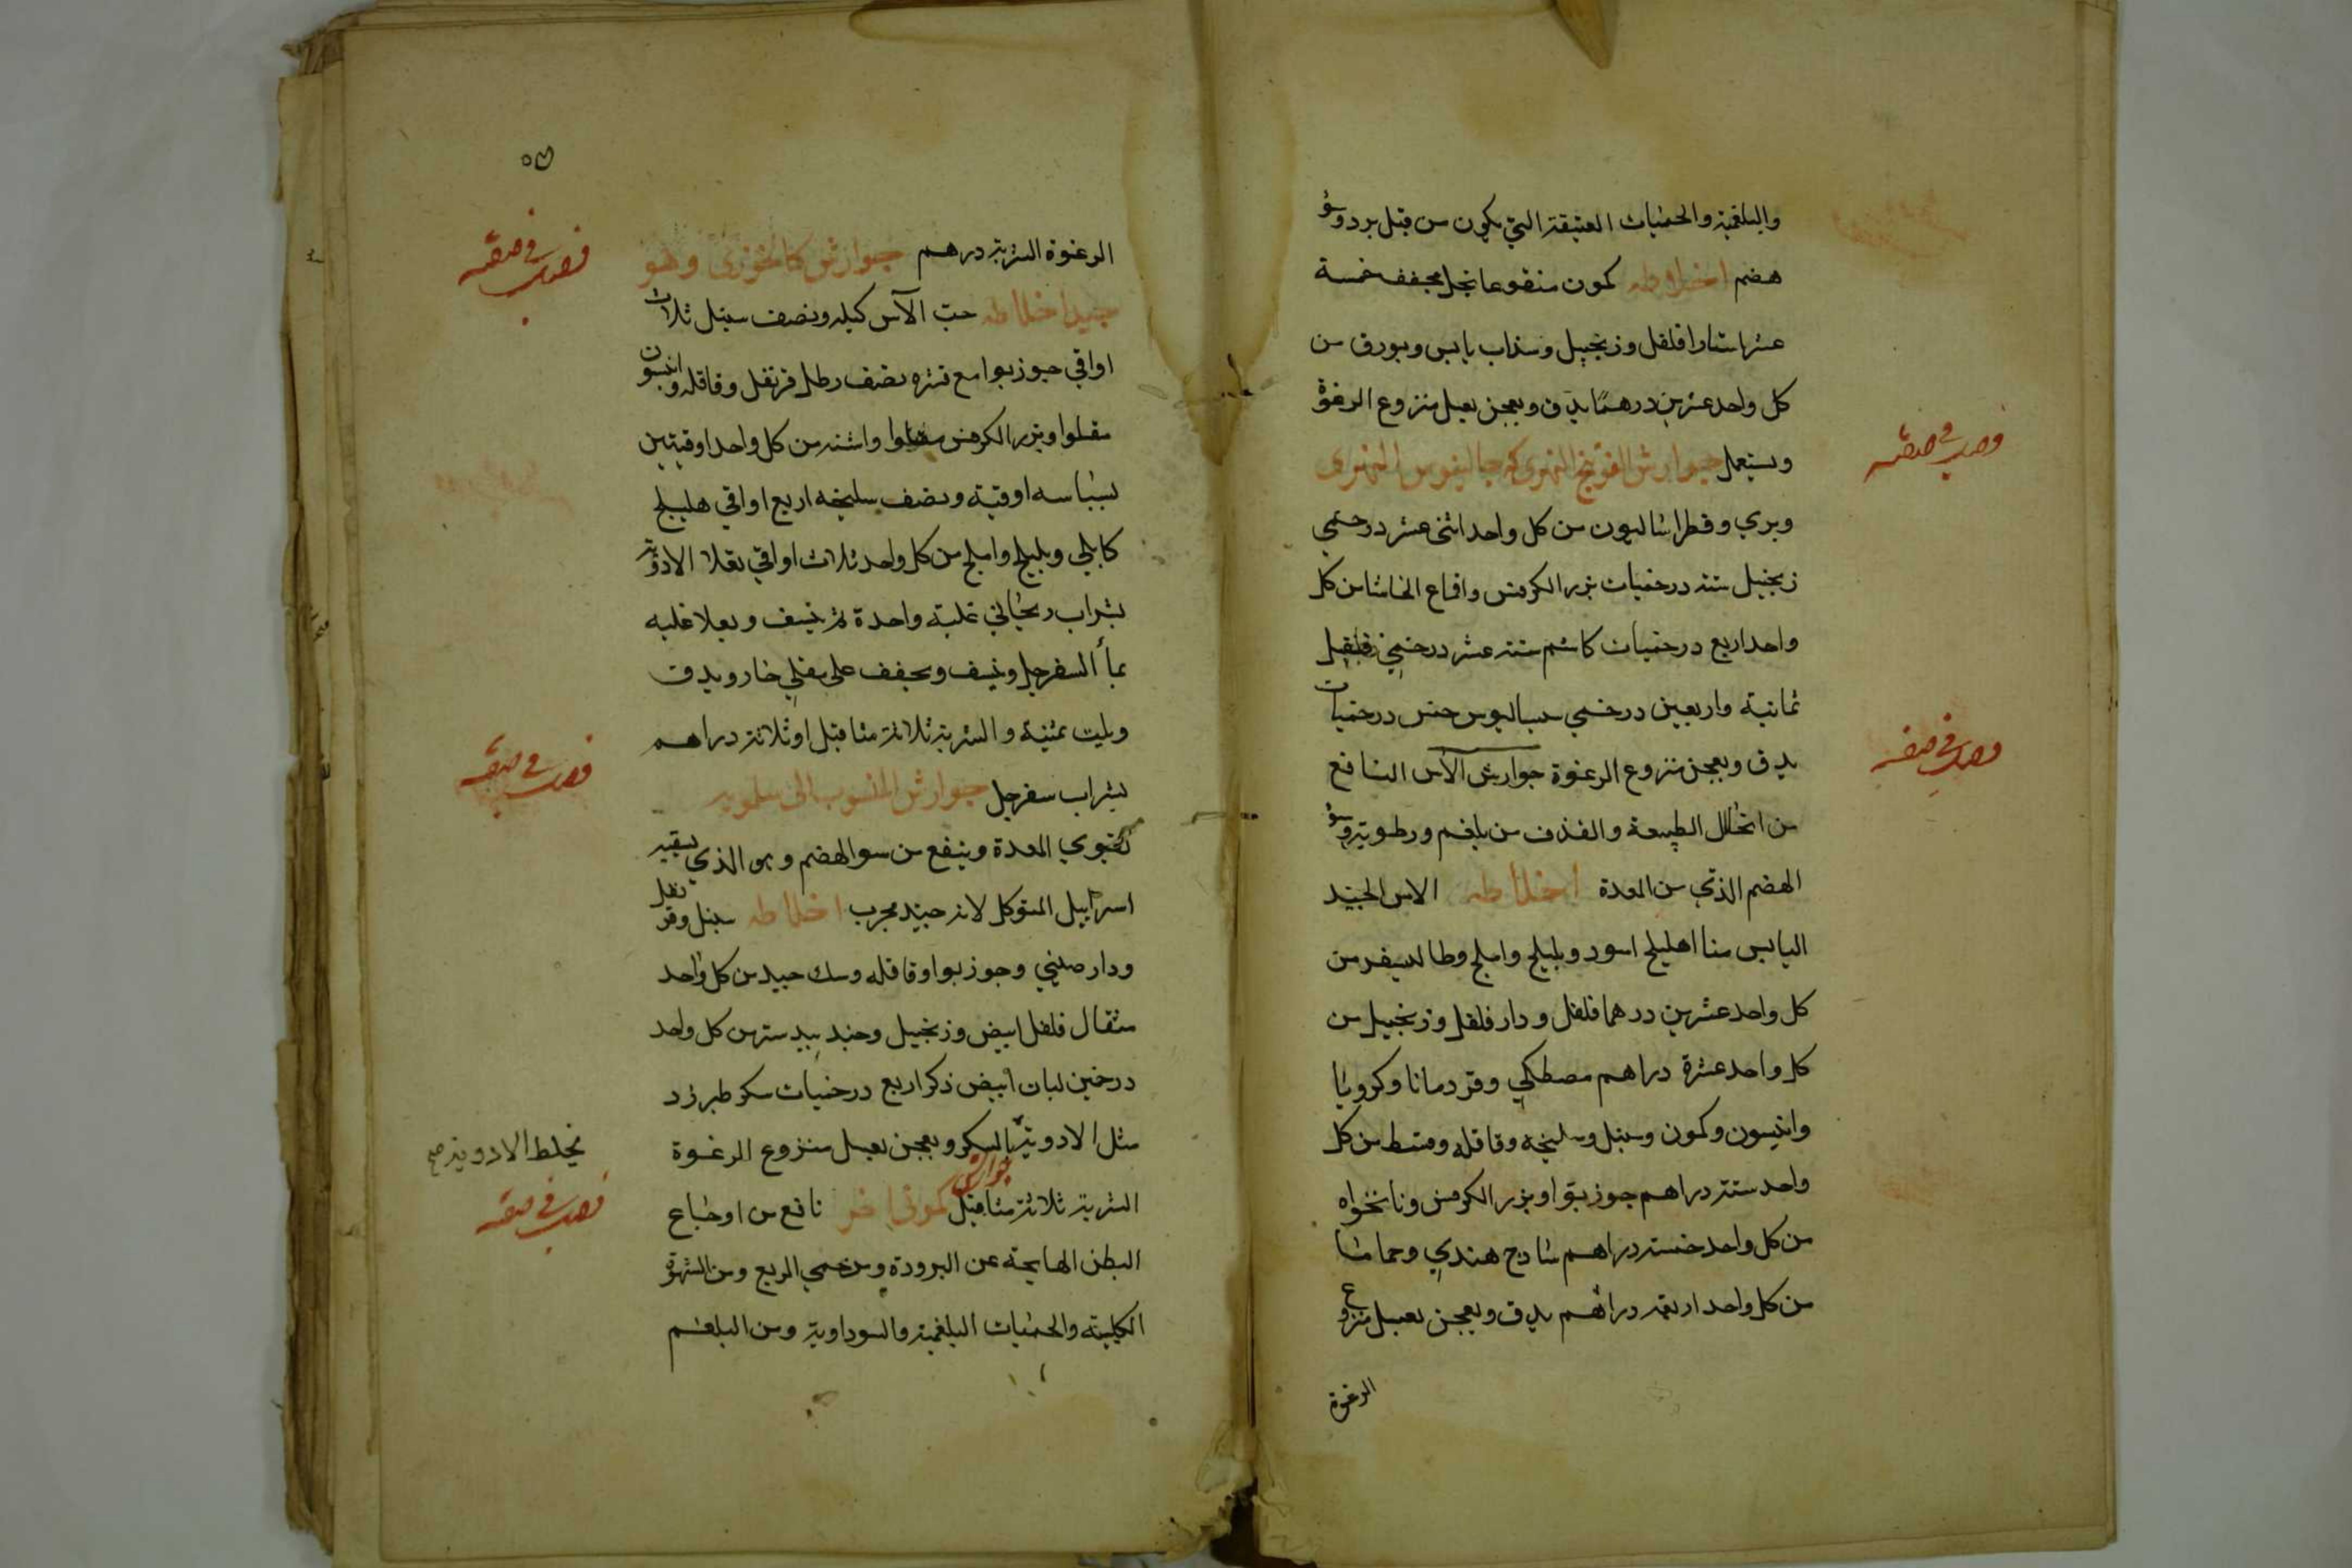 والبلغمية والحميات العتيقة التي يكون من قبل برد وسؤ
هضم اخلاطه كمون منقوعا بخل مجفف خمسة
عشر استارا فلفل وزنجبيل وسذاب يابس وبورق من
كل واحد عشرين درهمًا يدق ويعجن بعسل منزوع الرغوة
ويستعمل جوارش الفوتنج النهري
وبري وفطراساليون من كل واحد اثنى عشر درخمي
زنجبيل ستة درخميات بزر الكرفس واقماع الحاشا من كل
واحد اربع درخميات كاشم ستة عشر درخمي فلفل
ثمانية واربعين درخمي سيساليوس خمس درخميات
يدق ويعجن بمنزوع الرغوة جوارش الآس النافع
من انحلال الطبيعة والقذف من بلغم ورطوبة وسؤ
الهضم الذي من المعدة اخلاطه الاس الجيد
اليابس منا اهليلج اسود وبليلج واملج وطاليسفر من
كل واحد عشرين درهما فلفل ودار فلفل وزنجبيل من
كل واحد عشرة دراهم مصطكي وقردمانا وكرويا
وانيسون وكمون وسنبل وسليخه وقاقله وقسط من كل
واحد ستة دراهم جوزبوا وبزر الكرفس ونانخواه
من كل واحد خمسة دراهم سادج هندي وحماما
من كل واحد اربعة دراهم يدق ويعجن بعسل منزوع
الرغوة
الرغوة الشربة درهم جوارش كالخوزى وهو
جيد اخلاطه حب الآس كيله ونصف سنبل ثلاث
اواقي جوزبوا مع قشره نصف رطل قرنفل وقاقله وانيسون
مقلوا وبزر الكرفس مقلوا واشنه من كل واحد اوقيتين
بسباسه اوقية ونصف سليخه اربع اواقي هليلج
كابلي وبليلج واملج من كل واحد ثلاث اواقي تغلا الادوية
بشراب ريحاني غلية واحدة ثم ينشف ويغلا غليه
بمأ السفرجل وينشف ويجفف على مقلي حار ويدق
ويلت بميبة والشربة ثلاثة مثاقيل او ثلاثة دراهم
بشراب سفرجل جوارش المنسوب الى سلمويه
يقوي المعدة وينفع من سو الهضم وهو الذي يسقيه
اسرائيل المتوكل لانه جيد مجرب اخلاطه سنبل وقرنفل
ودار صيني وجوزبوا وقاقله وسك جيد من كل واحد
مثقال فلفل ابيض وزنجبيل وجندبيدستر من كل واحد
درخمين لبان ابيض ذكر اربع درخميات سكر طبرزد
مثل الادوية السكر ويعجن بعسل منزوع الرغوة
يخلط الادوية صح
الشربة ثلاثة مثاقيل جوارش كموني اخر نافع من اوجاع
البطن الهايجة عن البرودة ومن حمى الربع ومن الشهوة
الكلبية والحميات البلغمية والسوداوية ومن البلغم